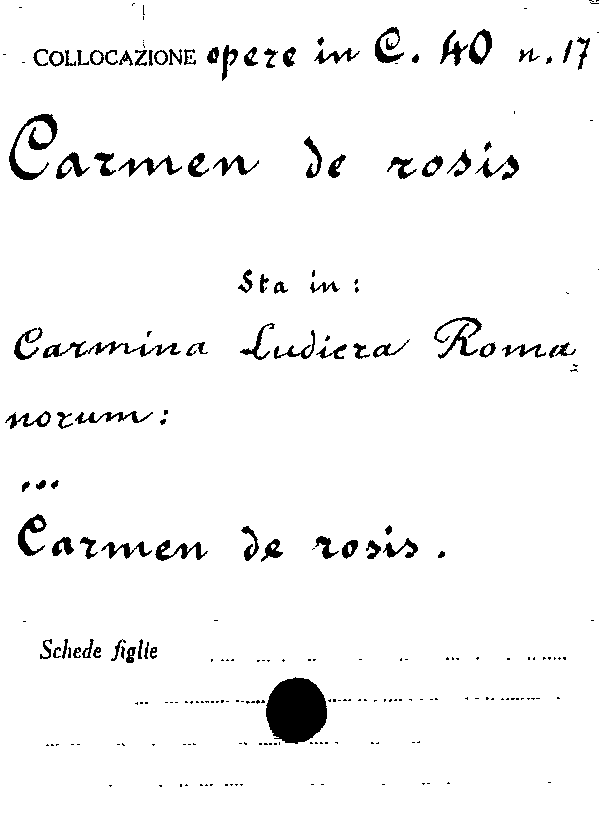 COLLOCAZIONE opere in C. 40 n. 17
Carmen de rosis
Sta in:
Carmina Ludicra Roma=
norum:
...
Carmen de rosis.
Schede figlie